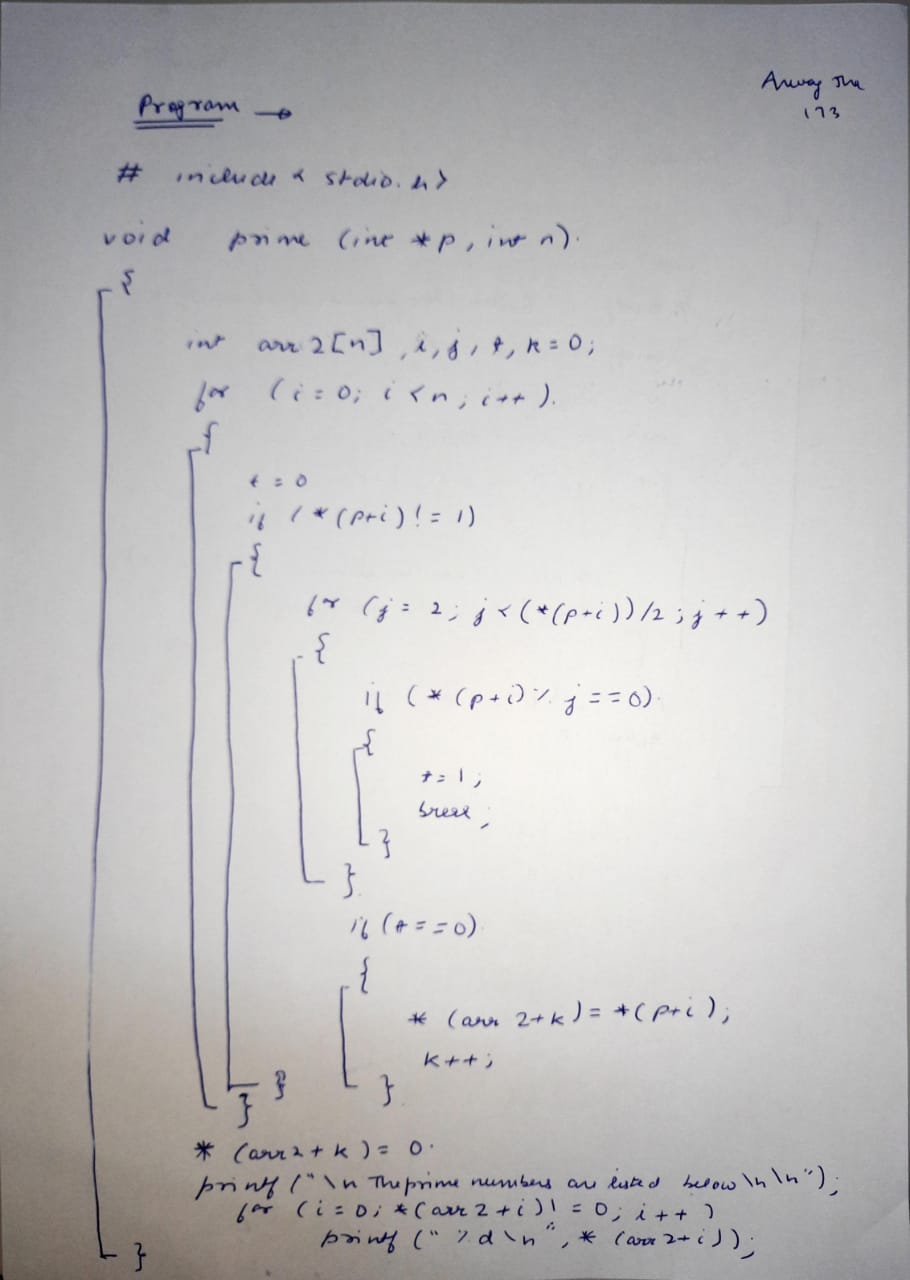 173
Program →
# include < stdio.h>
void prime (int *p, int n).
{
int arr2[n], i, j, t, k = 0;
for (i = 0; i < n; i++).
{
t = 0
if (*(p+i) != 1)
{
for (j = 2; j < (*(p+i))/2; j++)
{
if (*(p+i) % j == 0).
{
t = 1;
break;
}
}
if (t == 0).
{
* (arr 2+k) = *(p+i);
k++;
}
}
}
* (arr2+k) = 0.
printf ("\n The prime numbers are listed below \n \n");
for (i = 0; *(arr2+i) != 0; i++)
printf (" %d\n", * (arr2+i));
}